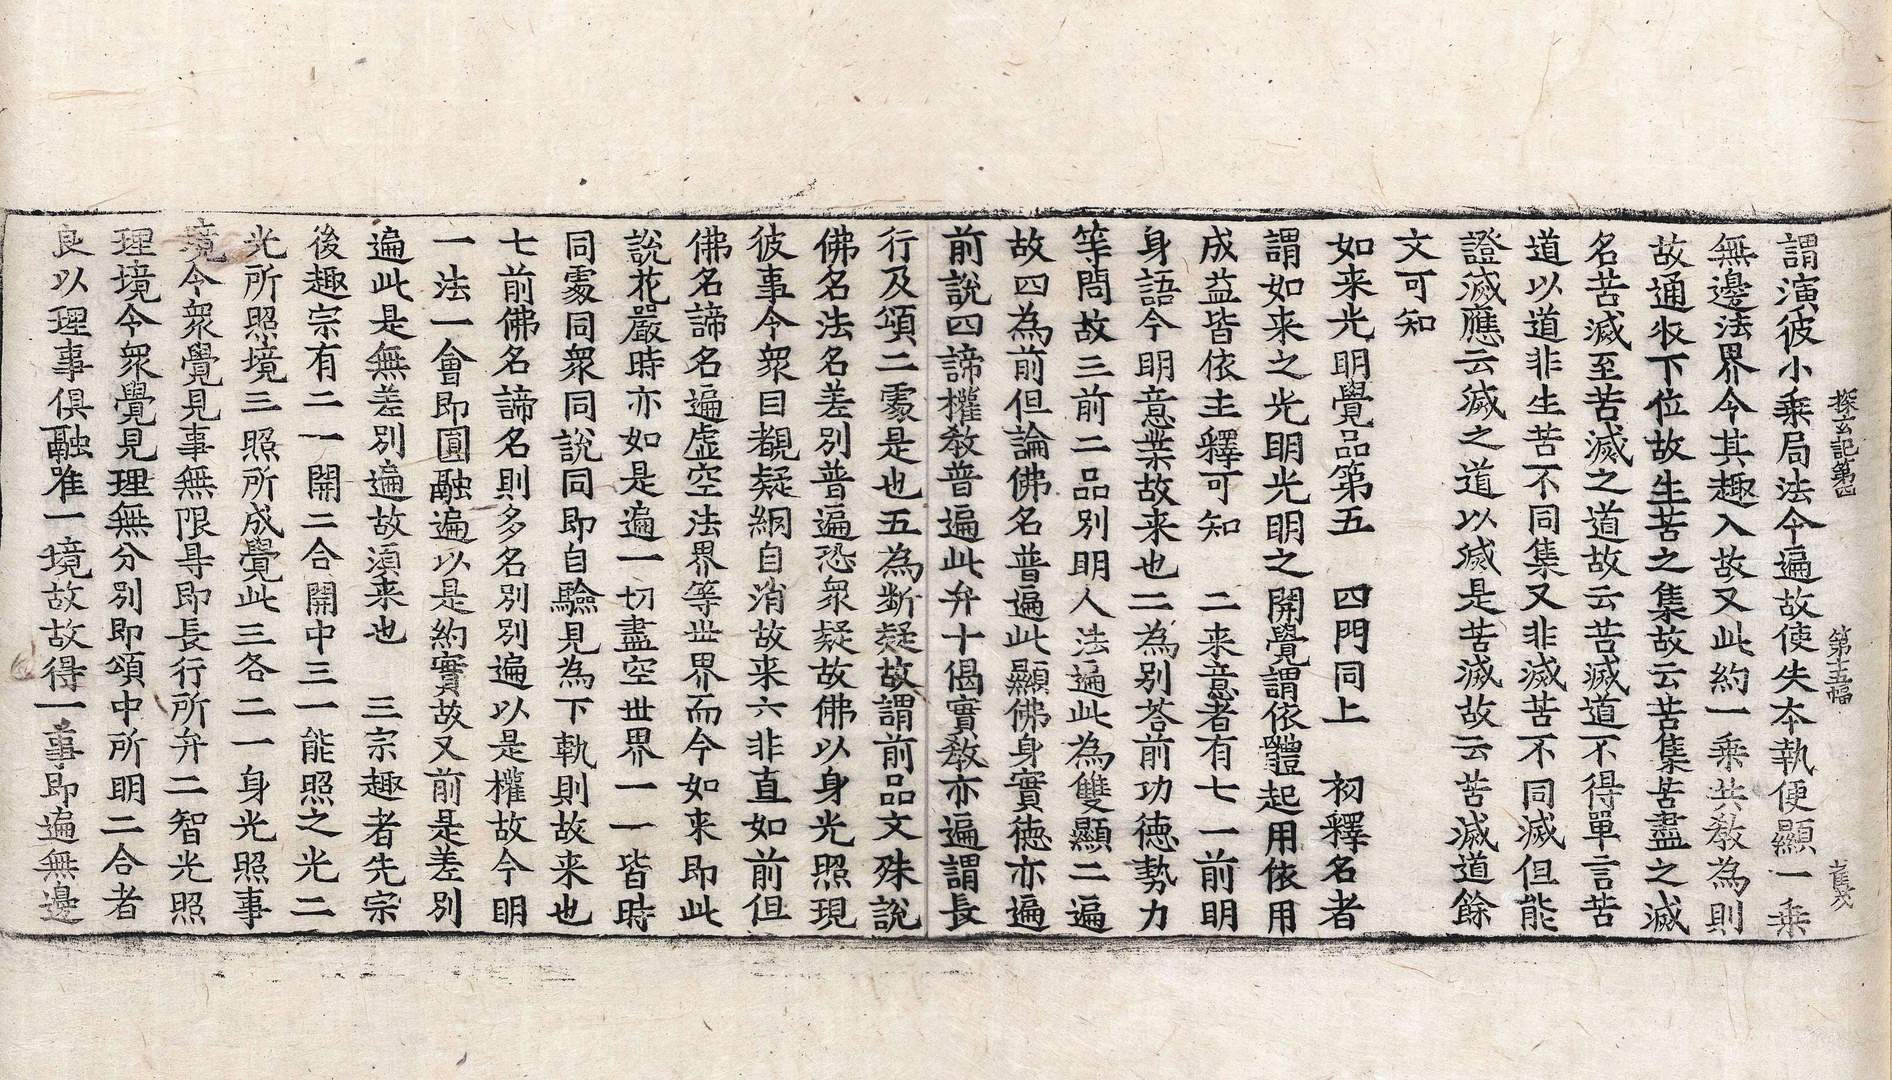 探玄記第四 第十五幅
謂演彼小乘局法令遍故使失本執便顯一乘
無邊法界令其趣入故又此約一乘共教為則
故通收下位故生苦之集故云苦集苦盡之滅
名苦滅至苦滅之道故云苦滅道不得單言苦
道以道非生苦不同集又非滅苦不同滅但能
證滅應云滅之道以滅是苦滅故云苦滅道餘
文可知
如来光明覺品第五 四門同上 初釋名者
謂如来之光明光明之開覺謂依體起用依用
成益皆依主釋可知 二来意者有七一前明
身語今明意業故来也二為別荅前功徳勢力
等問故三前二品別明人法遍此為雙顯二遍
故四為前但論佛名普遍此顯佛身實徳亦遍
前說四諦權教普遍此弁十偈實教亦遍謂長
行及頌二處是也五為断疑故謂前品文殊說
佛名法名差別普遍恐衆疑故佛以身光照現
彼事令衆目覩疑網自消故来六非直如前但
佛名諦名遍虛空法界等世界而今如来即此
說花嚴時亦如是遍一切盡空世界一一皆時
同處同衆同說同即自驗見為下軌則故来也
七前佛名諦名則多名別別遍以是權故今明
一法一會即圓融遍以是約實故又前是差別
遍此是無差別遍故須来也 三宗趣者先宗
後趣宗有二一開二合開中三一能照之光二
光所照境三照所成覺此三各二一身光照事
境令衆覺見事無限㝵即長行所弁二智光照
理境令衆覺見理無分別即頌中所明二合者
良以理事俱融唯一境故故得一事即遍無邊